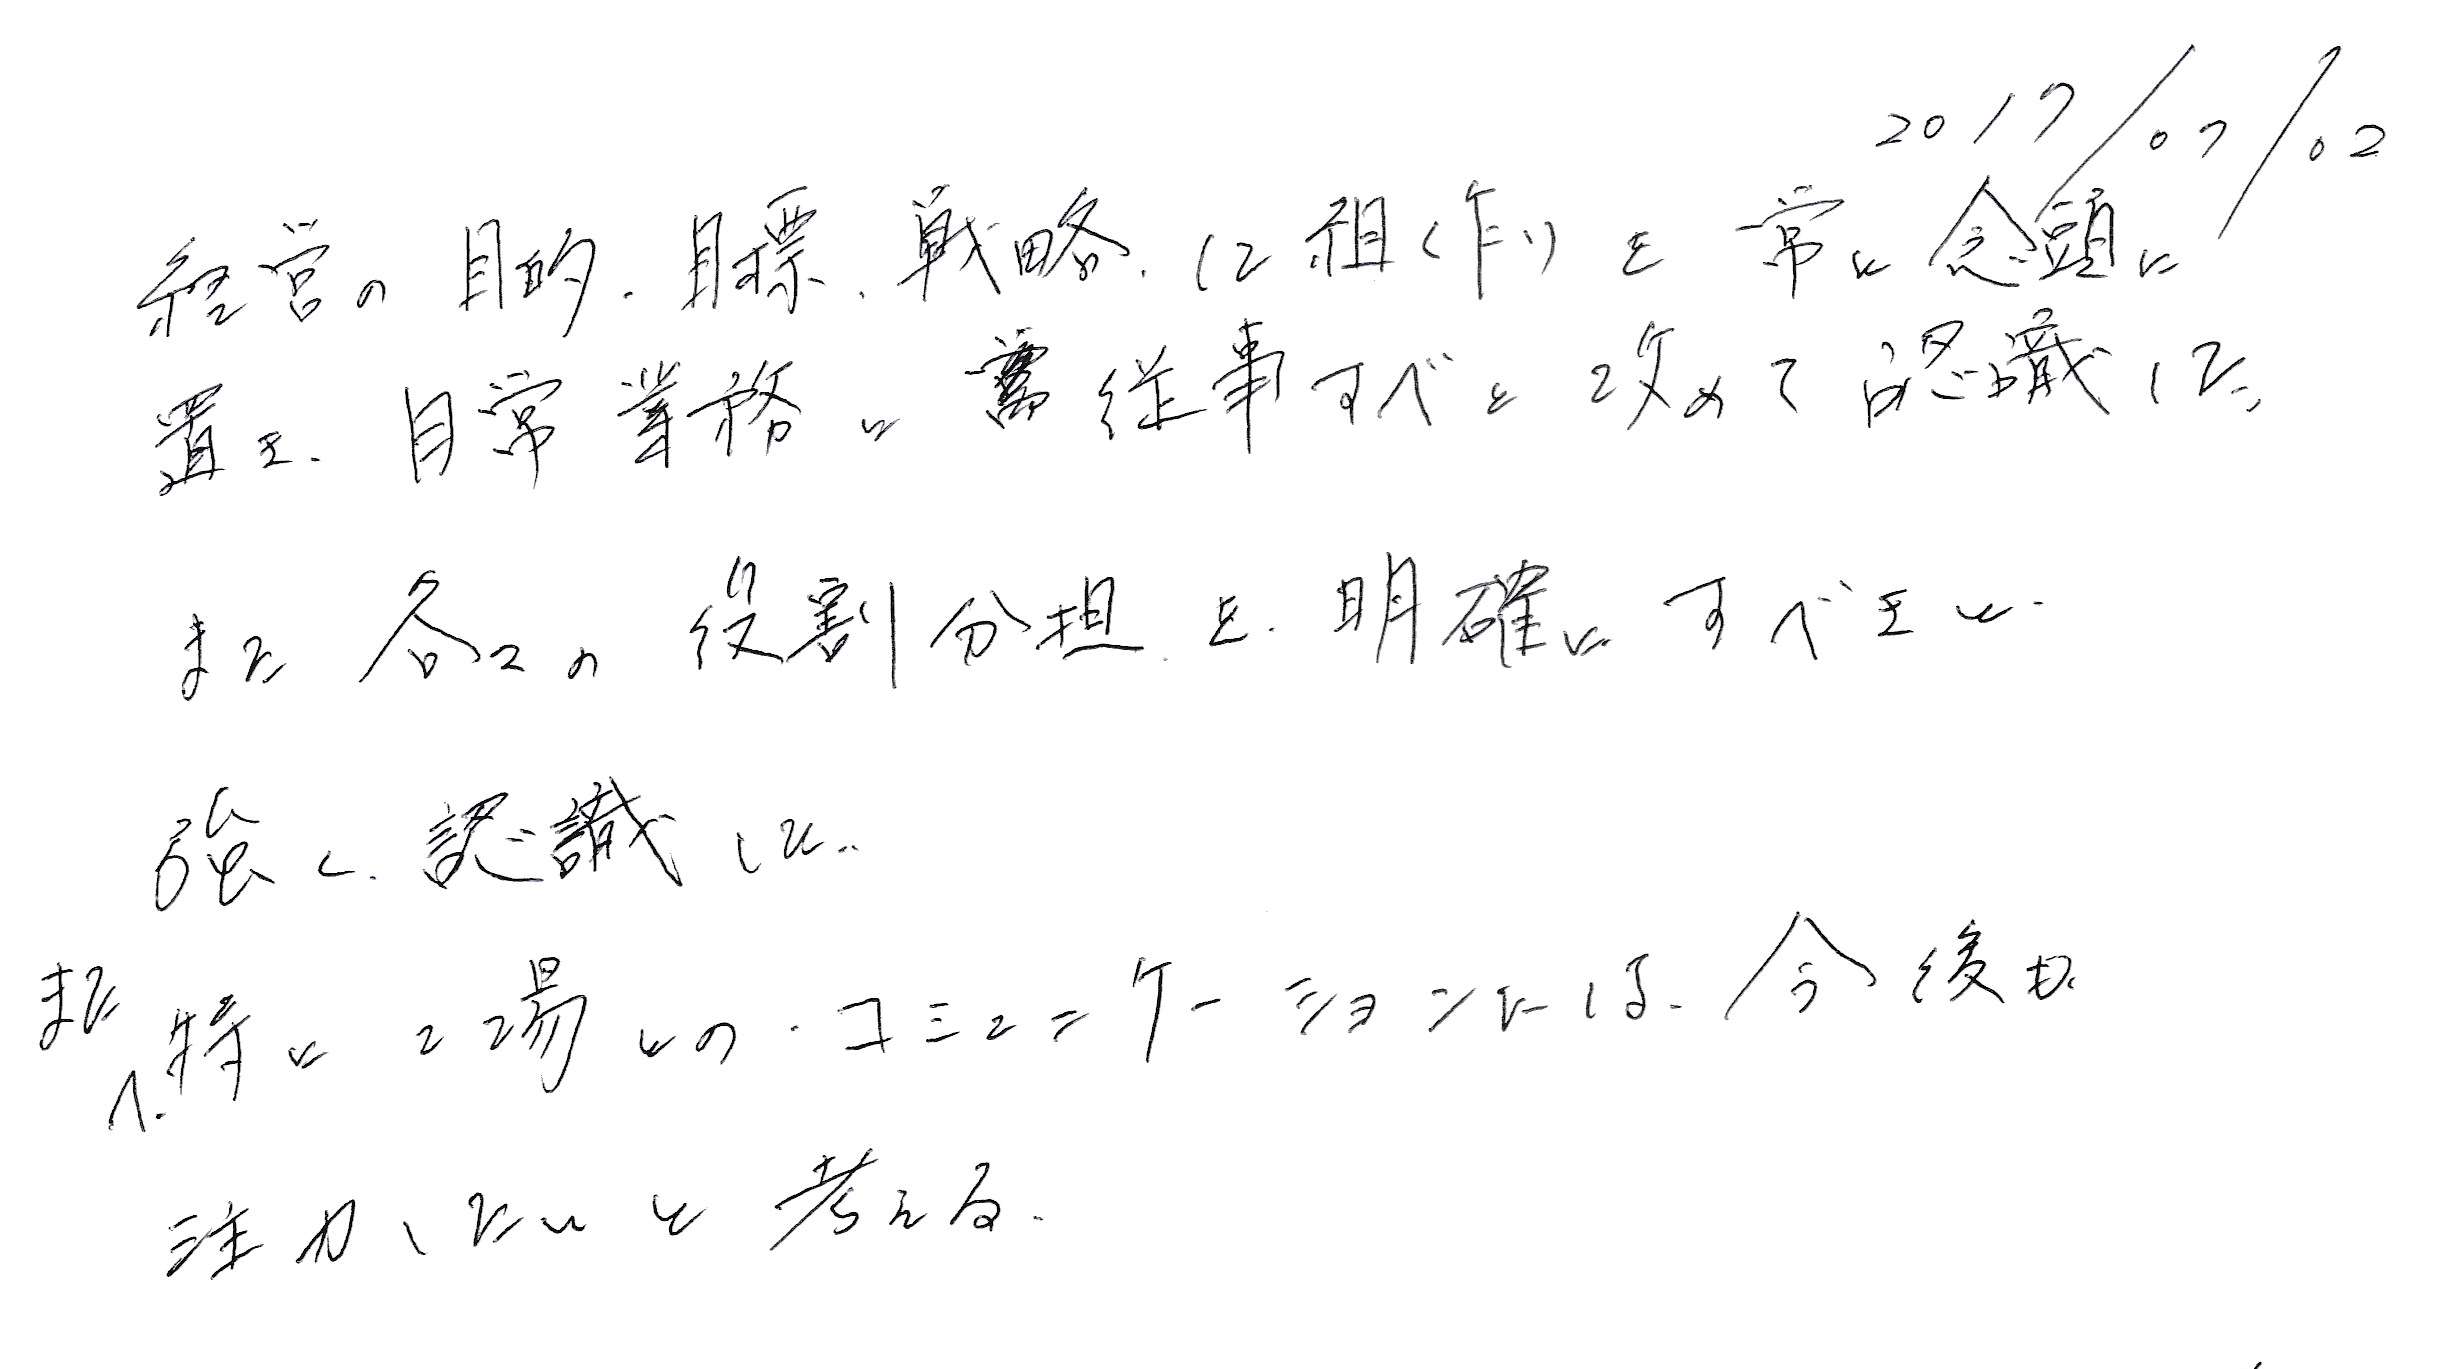 2017/07/02
経営の目的、目標、戦略、に組(作)りを常に念頭に
置き、日常業務に従事すべと改めて認識した。
また各々の役割分担を、明確にすべきと、
強く、認識した。
また、特に工場との、コミュニケーションには、今後も、
注力したいと考える。